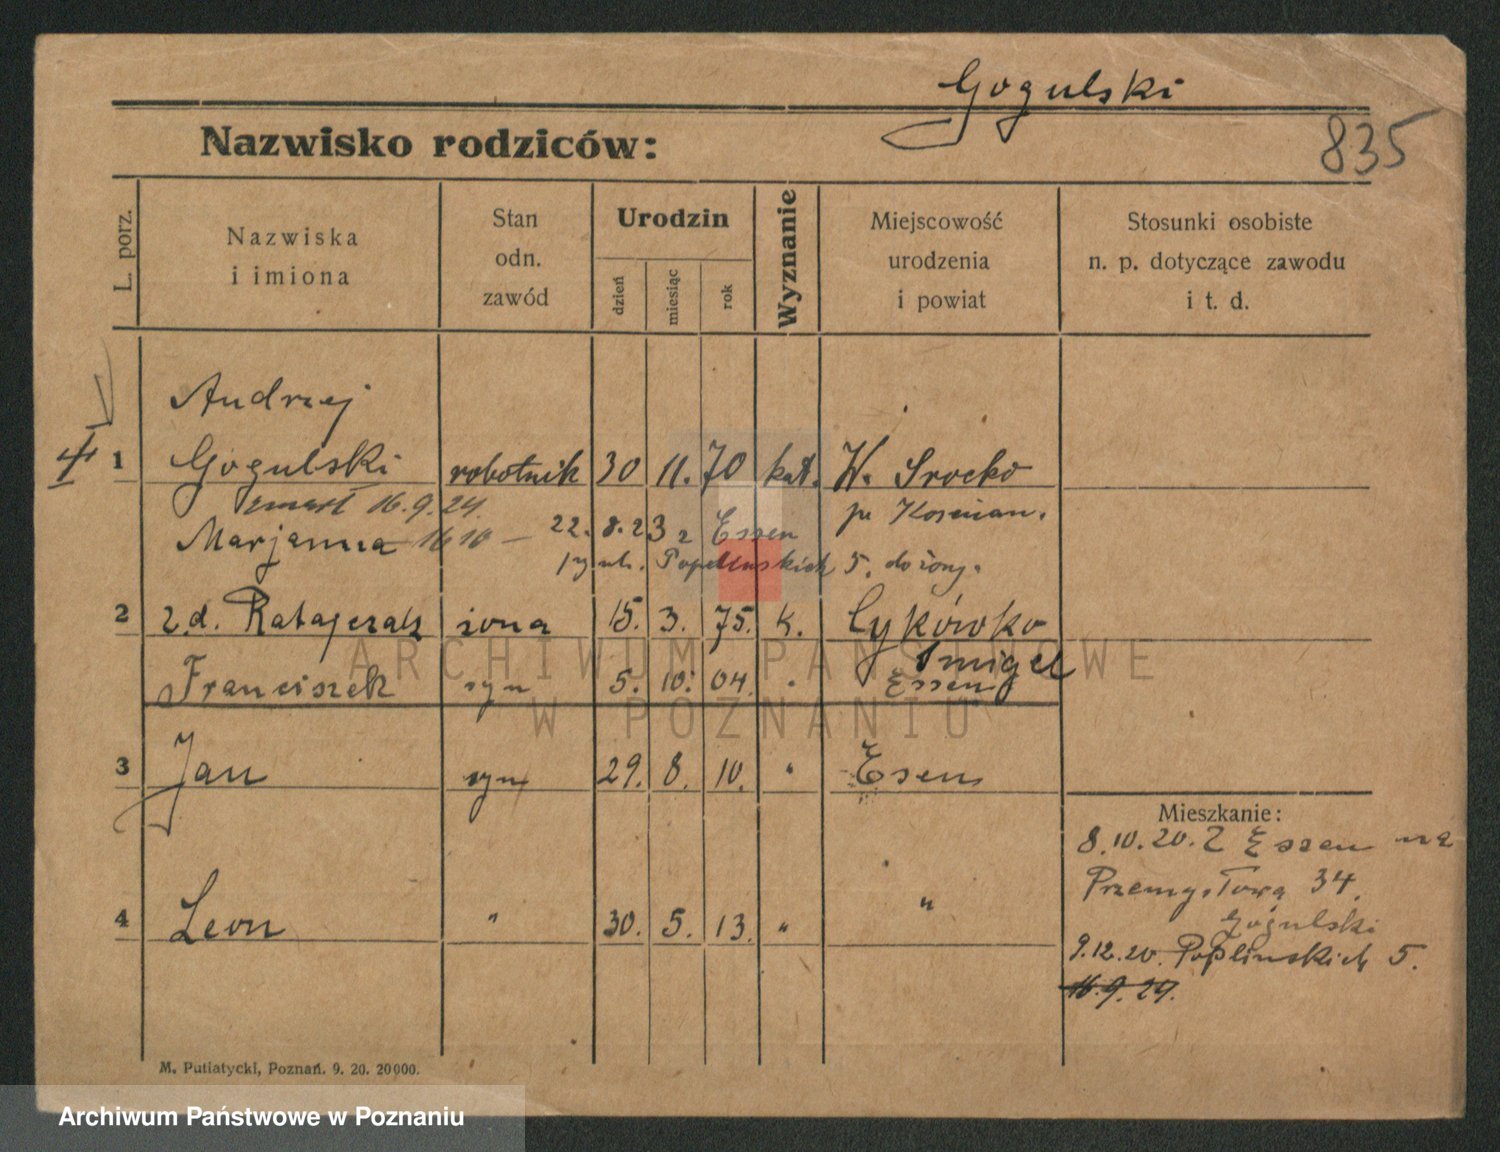 Gogulski
835
Nazwisko rodziców:
L. porz.
Nazwiska
i imiona
Stan
odn.
zawód
Urodzin
dzień
miesiąc
rok
Wyznanie
Miejscowość
urodzenia
i powiat
Stosunki osobiste
n. p. dotyczące zawodu
i t. d.
Andrzej
1 Gogulski robotnik 30 11. 70 kat. W. Srocko
zmarł 16.9.24. pw Kosmian.
Marjanna 22. 8. 23 z Essen
Poplinskich 5. do żony.
2 z.d. Ratajczak żona 15. 3. 75. k. Cykówko
Smigel
Franciszek syn 5. 10. 04. " Essen
3 Jan syn 29. 8. 10. " Esen
Mieszkanie:
8.10.20. Z Essen na
Przemysłową 34.
Gogulski
4 Leon " 30. 5. 13. " "
9.12.20. Poplinskich 5.
16.9.24.
M. Putiatycki, Poznań. 9. 20. 20000.
ARCHIWUM PAŃSTWOWE
W POZNANIU
Archiwum Państwowe w Poznaniu